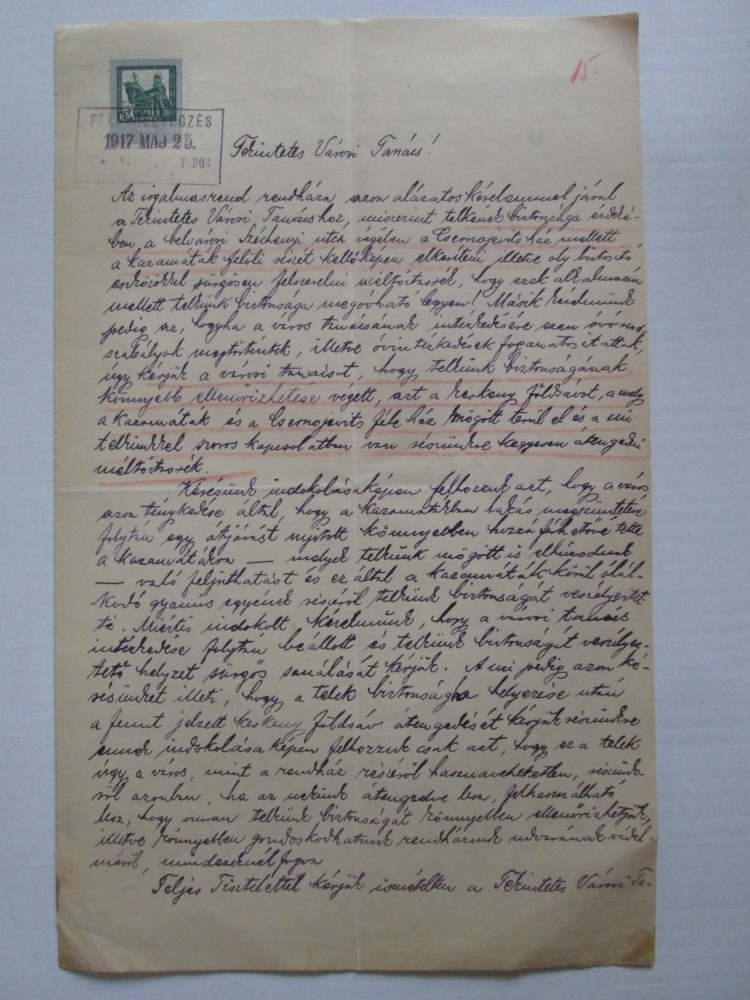 15.
FELÜLBÉLYEGZÉS
1917 MÁJ 25.
Tekintetes Városi Tanács!
Az irgalmasrend rendháza azon alázatos kérelemmel járul
a Tekintetes Városi Tanácshoz, miszerint telkének biztonsága érdeké-
ben a belvárosi Széchenyi utca végében a Csernojevits ház mellett
a kazamaták felőli részét kellőképen elkeríteni illetve oly biztosító
eszközökkel sürgősen felszerelni méltóztassék, hogy ezek alkalmazása
mellett telkünk biztonsága megóvható legyen! Másik kérelmünk
pedig az, hogyha a város tanácsának intézkedésére ezen óvórend-
szabályok megtörténtek, illetve óvintézkedések foganatosíttattak,
úgy kérjük a városi tanácsot, hogy telkünk biztonságának
könnyebb ellenőrizhetése végett, azt a keskeny földsávot, a mely
a kazamaták és a Csernojevits féle ház mögött terül el és a mi
telkünkkel szoros kapcsolatban van részünkre kegyesen átengedni
méltóztassék.
Kérésünk indokolásaképen felhozzuk azt, hogy a város
azon ténykedése által, hogy a kazamatákban lakás megszüntetése
folytán egy átjárást nyitott könnyebben hozzáférhetővé tette
a kazamatákra — melyek telkünk mögött is elhúzódnak
— való feljuthatást és ez által a kazamaták körül ólál-
kodó gyanús egyének részéről telkünk biztonságát veszélyeztet-
té. Miértis indokolt kérelmünk, hogy a városi tanács
intézkedése folytán beállott és telkünk biztonságát veszélyez-
tető helyzet sürgős sanálását kérjük. A mi pedig azon ké-
résünket illeti, hogy a telek biztonságba helyezése után
a fennt jelzett keskeny földsáv átengedését kérjük részünkre
ennek indokolásaképen felhozzuk csak azt, hogy ez a telek
úgy a város, mint a rendház részéről hasznavehetetlen, részünk-
ről azonban, ha az nekünk átengedve lesz, felhasználható
lesz, hogy onnan telkünk biztonságát könnyebben ellenőrizhetjük,
illetve könnyebben gondoskodhatunk rendházunk udvarának védel-
méről, mindezeknél fogva
Teljes Tisztelettel kérjük ismételten a Tekintetes Városi Ta-